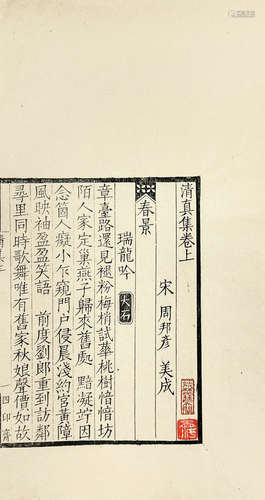 清真集卷上
宋 周邦彥 美成
春景
瑞龍吟 大石
章臺路還見褪粉梅梢試華桃樹愔愔坊
陌人家定巢燕子歸來舊處 黯凝竚因
念箇人癡小乍窺門戶侵晨淺約宮黃障
風映袖盈盈笑語 前度劉郎重到訪鄰
尋里同時歌舞唯有舊家秋娘聲價如故
四印齋